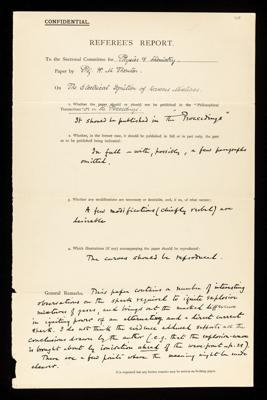 CONFIDENTIAL.
REFEREE'S REPORT.
To the Sectional Committee for Physics & Chemistry.
Paper by Prof. W. M. Thornton
On The Electrical Ignition of Gaseous Mixtures.
1. Whether the paper should or should not be published in the "Philosophical
Transactions" or in the "Proceedings"
It should be published in the "Proceedings"
2. Whether, in the former case, it should be published in full or in part only, the part
or parts to be printed being indicated:
In full – with, possibly, a few paragraphs
omitted.
3. Whether any modifications are necessary or desirable, and, if so, of what nature:
A few modifications (chiefly verbal) are
desirable
4. Which illustrations (if any) accompanying the paper should be reproduced:
The curves should be reproduced.
General Remarks. This paper contains a number of interesting
observations on the spark required to ignite explosive
mixtures of gases, and brings out the marked difference
in igniting power of an alternating and a direct current
spark. I do not think the evidence adduced supports all the
conclusions drawn by the author (e.g. that the explosion-wave
is brought about by ionisation ahead of the wave-front
There are a few points where the meaning might be made
clearer.
It is requested that any further remarks may be written on